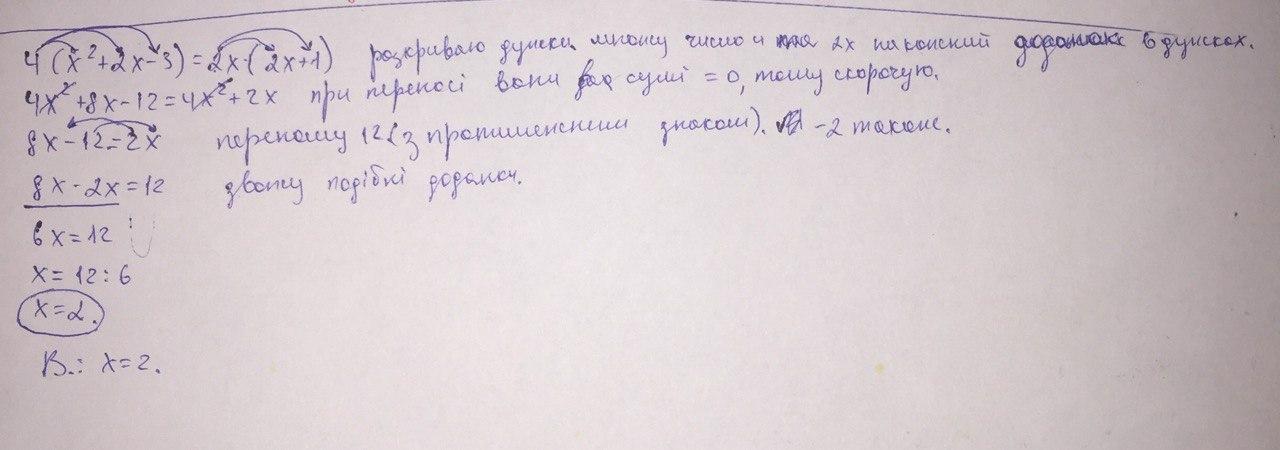 4(x²+2x-3)=2x·(2x+1) розкриваю дужки, множу число 4 та 2x на кожний доданок в дужках.
4x²+8x-12=4x²+2x при переносі вони в сумі = 0, тому скорочую.
8x-12=2x переношу 12 (з протилежним знаком). -2 також.
8x-2x=12 зводжу подібні доданки.
6x=12
x=12:6
x=2.
В.: x=2.